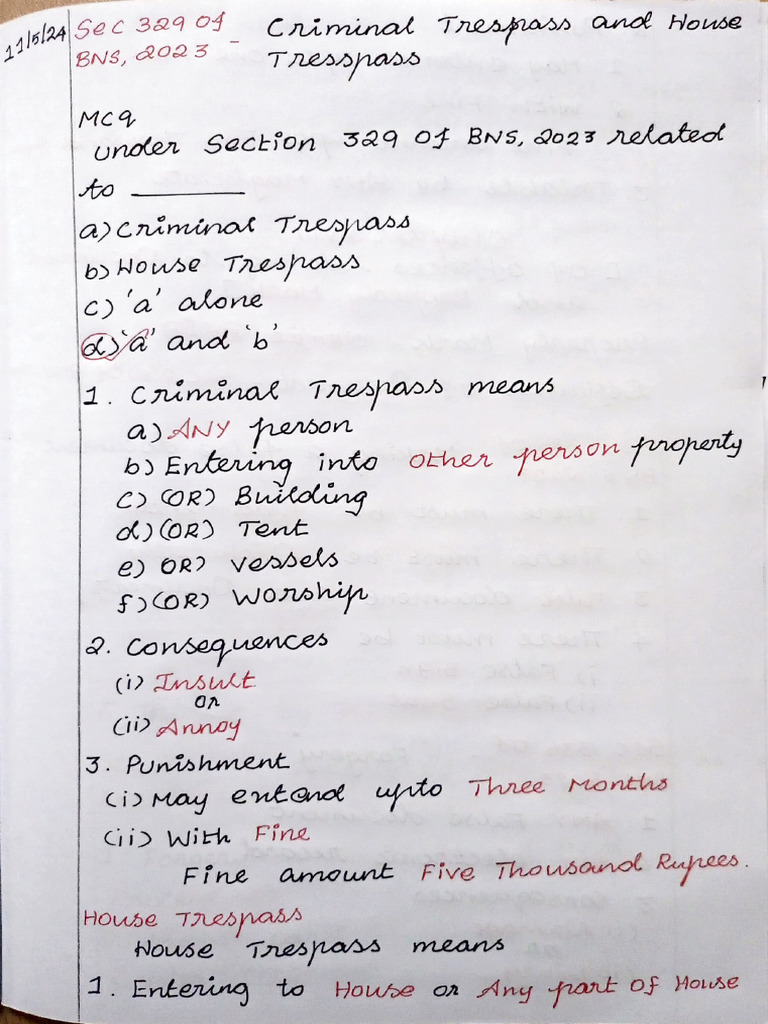 11/5/24 Sec 329 of BNS, 2023 - Criminal Trespass and House Tresspass
MCQ
under Section 329 of BNS, 2023 related
to ________
a) Criminal Trespass
b) House Trespass
c) 'a' alone
d) 'a' and 'b'
1. Criminal Trespass means
a) ANY person
b) Entering into other person property
c) (OR) Building
d) (OR) Tent
e) OR) vessels
f) (OR) Worship
2. Consequences
(i) Insult
or
(ii) Annoy
3. Punishment
(i) May entend upto Three Months
(ii) With Fine
Fine amount Five Thousand Rupees.
House Trespass
House Trespass means
1. Entering to House or Any part of House